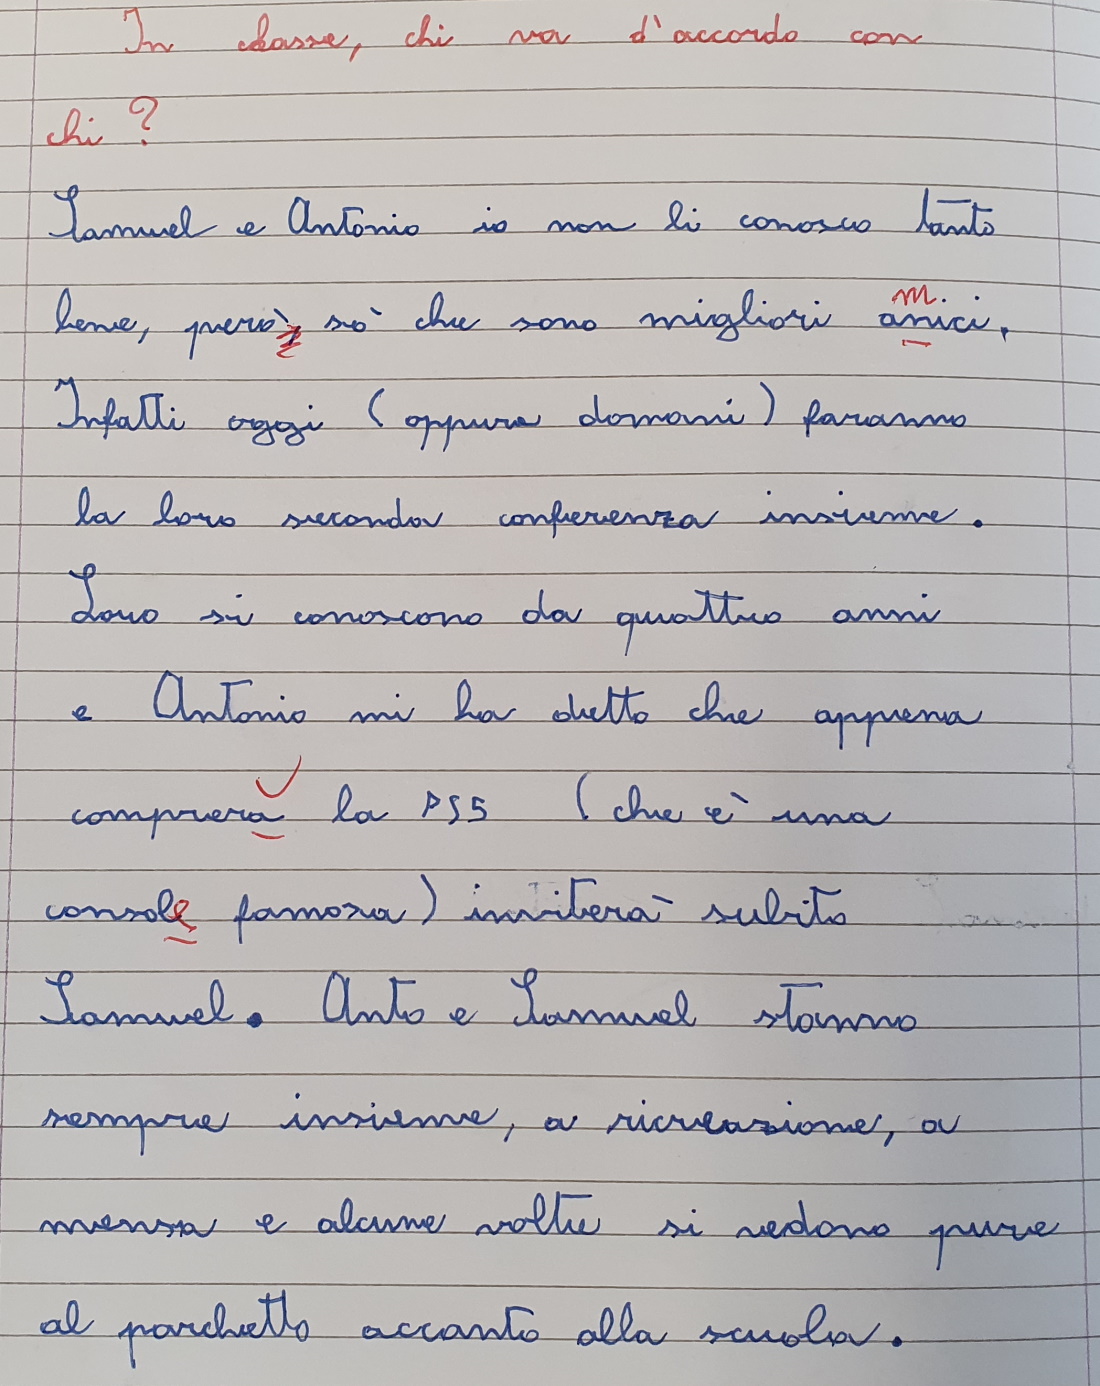 In classe, chi va d'accordo con
chi?
Samuel e Antonio io non li conosco tanto
bene, però, sò che sono migliori anici.
m.
Infatti oggi (oppure domani) faranno
la loro seconda conferenza insieme.
Loro si conoscono da quattro anni
e Antonio mi ha detto che appena
comprera la PS5 (che è una
console famosa) inviterà subito
Samuel. Anto e Samuel stanno
sempre insieme, a ricreazione, a
mensa e alcune volte si vedono pure
al parchetto accanto alla scuola.